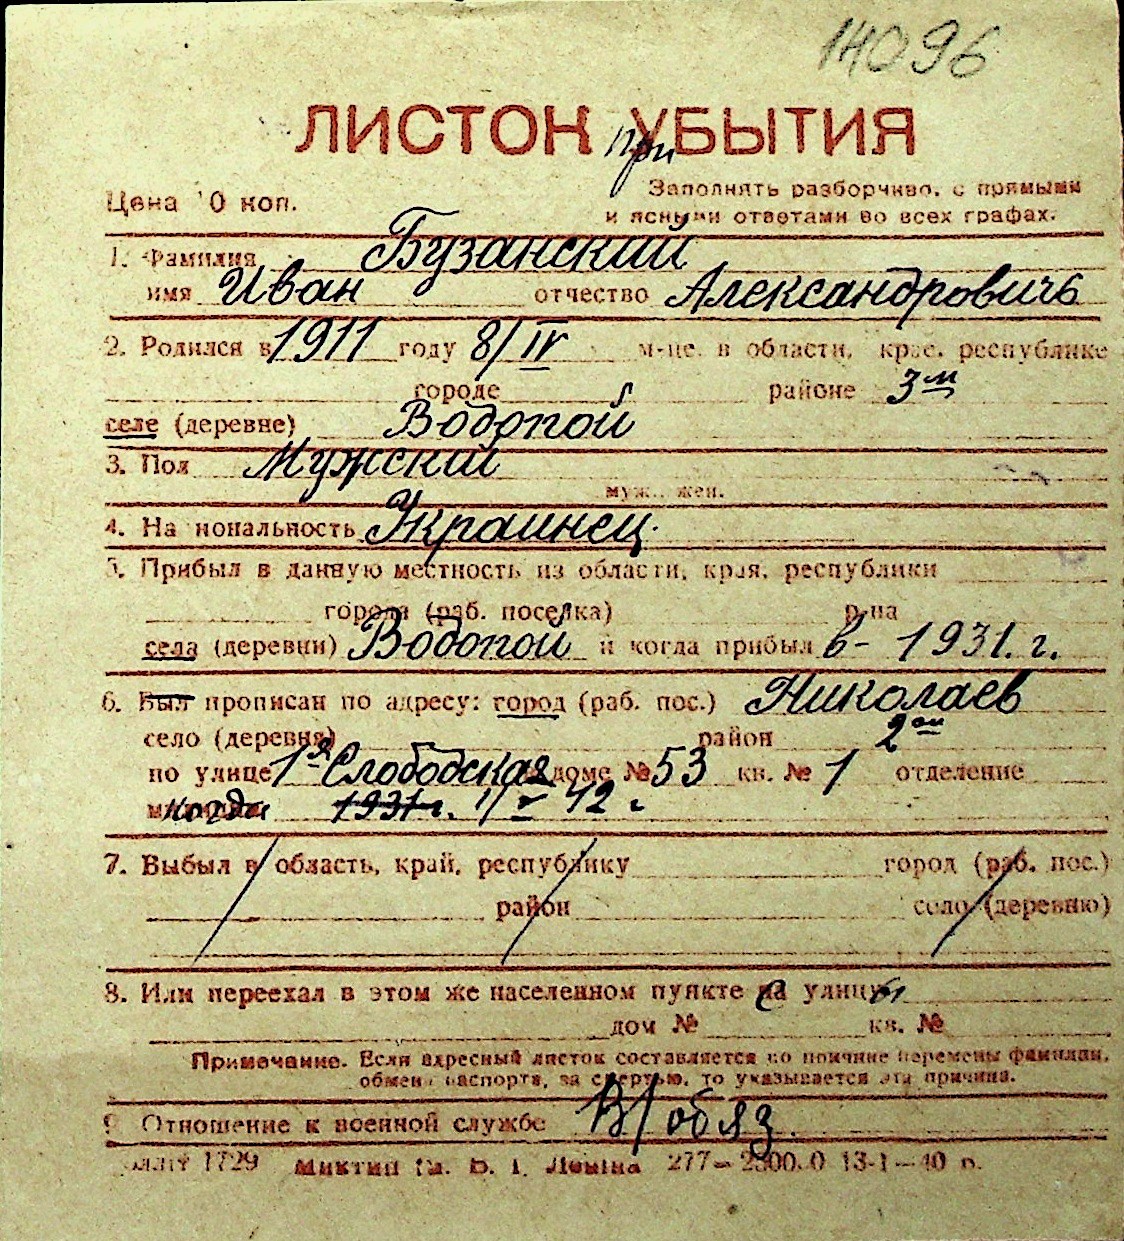 14096
ЛИСТОК при УБЫТИЯ
Цена 10 коп.
Заполнять разборчиво, с прямыми
и ясными ответами во всех графах.
1. Фамилия Бузанский
имя Иван отчество Александровичь
2. Родился в 1911 году 8/IV м-це, в области, крае, республике
городе районе 3м
селе (деревне) Водопой
3. Пол Мужский
муж., жен.
4. Национальность Украинец.
5. Прибыл в данную местность из области, края, республики
города (раб. поселка) р-на
села (деревни) Водопой и когда прибыл в - 1931. г.
6. Был прописан по адресу: город (раб. пос.) Николаев
село (деревня) район 2ой
по улице 1я Слободская доме № 53 кв. № 1 отделение
когда 1931 г. 1/V 42 г
7. Выбыл в область, край, республику город (раб. пос.)
район село (деревню)
8. Или переехал в этом же населенном пункте с улицы
дом № кв. №
Примечание. Если адресный листок составляется по причине перемены фамилии,
обмена паспорта, за смертью, то указывается эта причина.
9. Отношение к военной службе В/обяз.
1729 им. В. И. Ленина 277— 13-1—40 р.